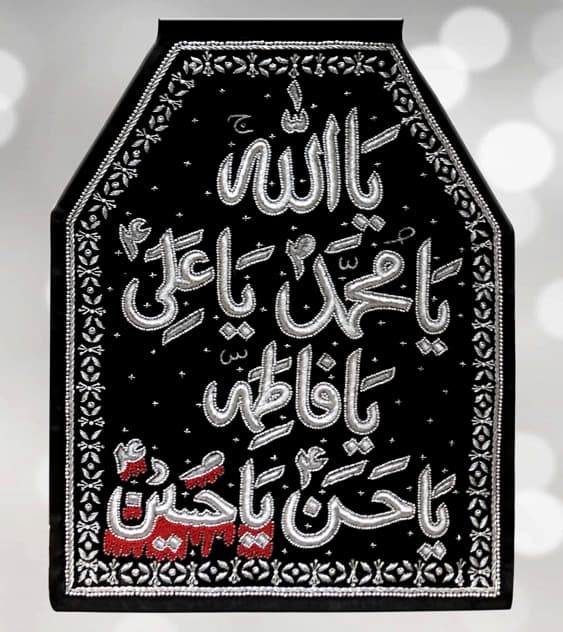 یا اللہ
یا محمد یا علی
یا فاطمہ
یا حسن یا حسین